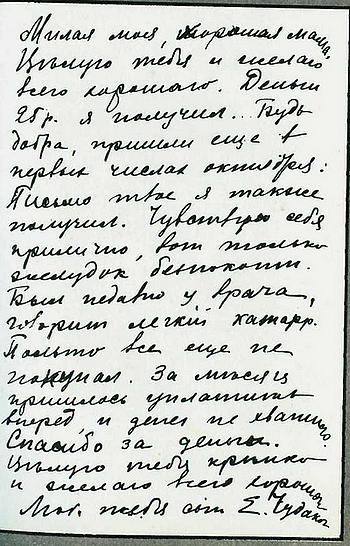 Милая моя, хорошая мама,
Цѣлую тебя и желаю
всего хорошаго. Деньги
25 р. я получил... Будь
добра, пришли еще в
первых числах октября:
Письмо твое я также
получил. Чувствую себя
прилично, вот только
желудок безпокоит.
Был недавно у врача,
говорит легкий катарр.
Пальто все еще не
покупал. За мѣсяц
пришлось уплатить
вперед, и денег не хватило.
Спасибо за деньги.
Цѣлую тебя крѣпко
и желаю всего хорошаго
тебя Е. Чудаков